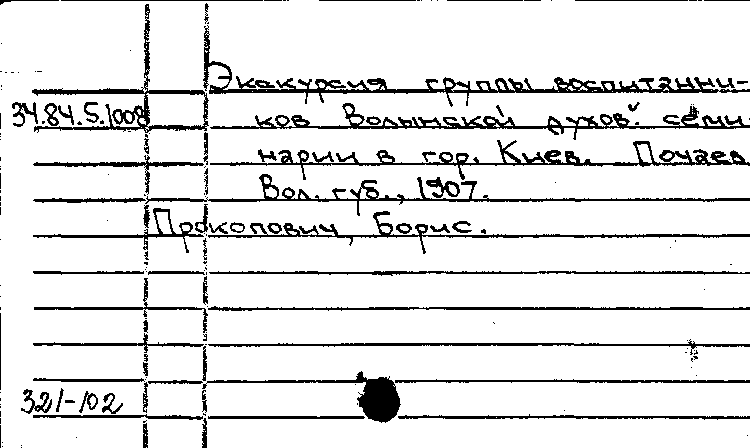 Экскурсия группы воспитанни-
34.84.5.1008
ков Волынской духов. семи
нарии в гор. Киев. Почаев
Вол. губ., 1907.
Прокопович, Борис.
321-102